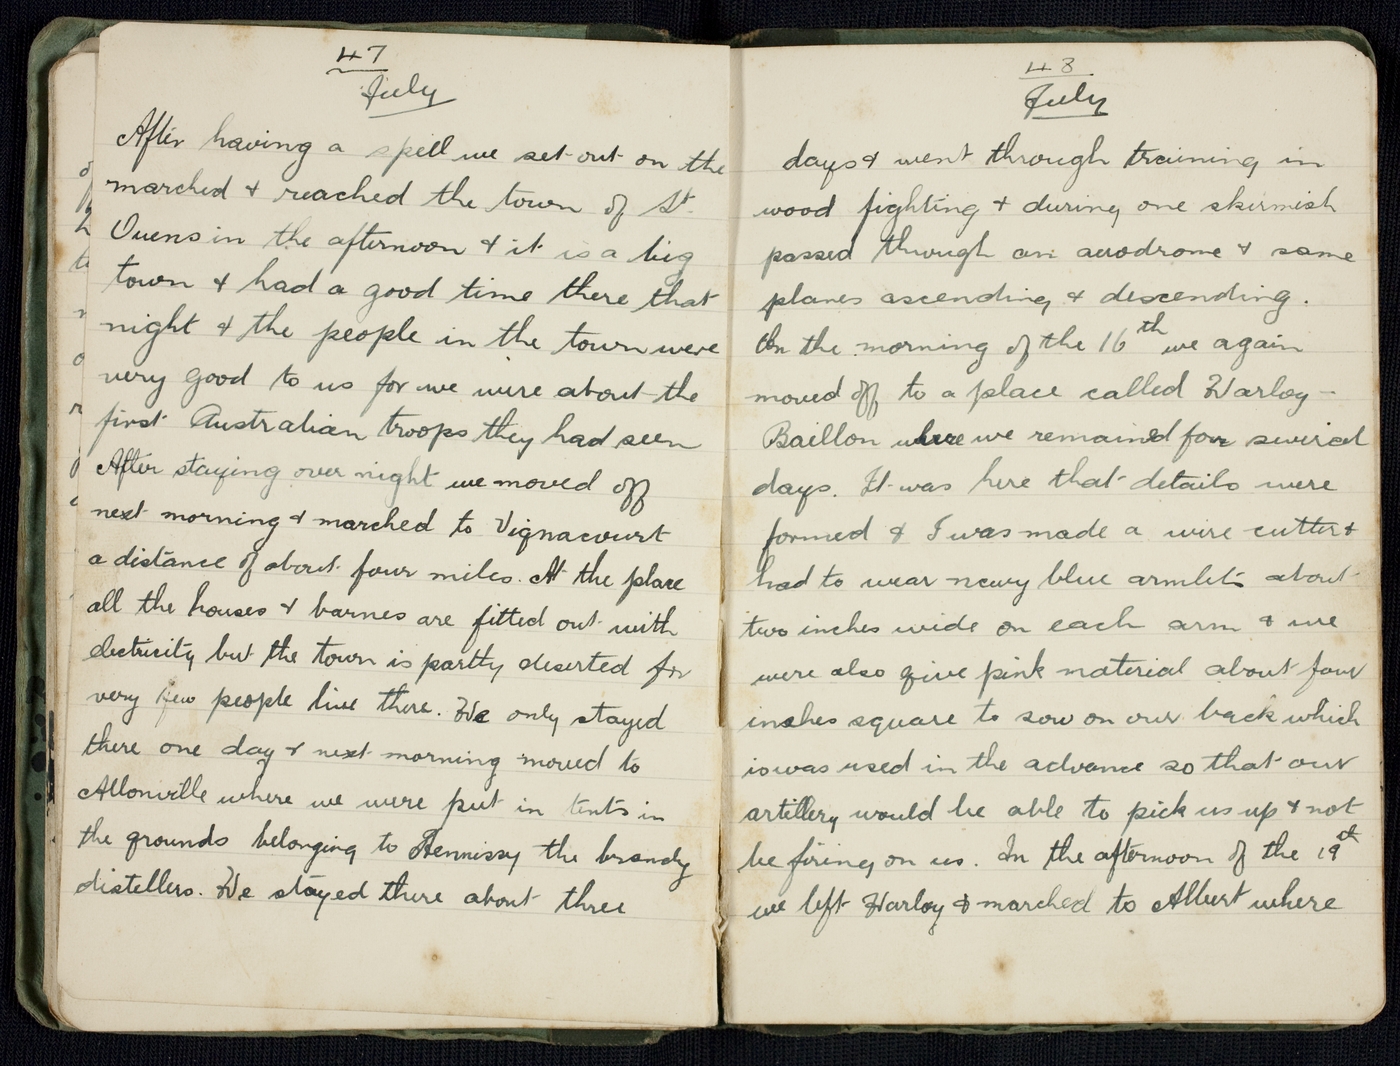 47
July
After having a spell we set out on the
marched & reached the town of St.
Ouens in the afternoon & it is a big
town & had a good time there that
night & the people in the town were
very good to us for we were about the
first Australian troops they had seen
After staying over night we moved off
next morning & marched to Vignacourt
a distance of about four miles. At the place
all the houses & barnes are fitted out with
electricity but the town is partly deserted for
very few people live there. We only stayed
there one day & next morning moved to
Allonville where we were put in tents in
the grounds belonging to Hennissy the brandy
distillers. We stayed there about three
48
July
days & went through training in
wood fighting & during one skirmish
passed through an aerodrome & some
planes ascending & descending.
On the morning of the 16th we again
moved off to a place called Warloy-
Baillon where we remained for several
days. It was here that details were
formed & I was made a wire cutter &
had to wear navy blue armlets about
two inches wide on each arm & we
were also give pink material about four
inches square to sow on our back which
is was used in the advance so that our
artillery would be able to pick us up & not
be firing on us. In the afternoon of the 19th
we left Warloy & marched to Albert where